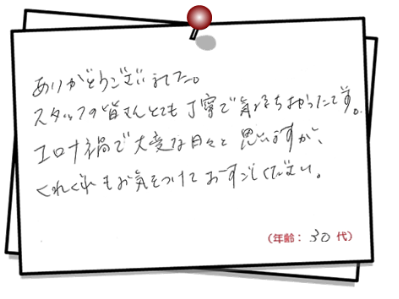 ありがとうございました。
スタッフの皆さんとても丁寧で気持ちよかったです。
コロナ禍で大変な日々と思いますが、
くれぐれもお気をつけておすごしください。
(年齢：30代)